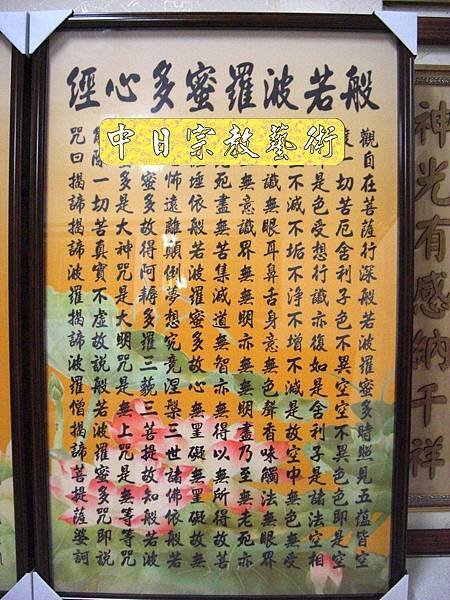 般若波羅蜜多心經
中日宗教藝術
觀自在菩薩行深般若波羅蜜多時照見五蘊皆空
一切苦厄舍利子色不異空空不異色色即是空
是色受想行識亦復如是舍利子是諸法空相
不滅不垢不淨不增不減是故空中無色無受
識無眼耳鼻舌身意無色聲香味觸法無眼界
無意識界無無明亦無無明盡乃至無老死亦
死盡無苦集滅道無智亦無得以無所得故菩
埵依般若波羅蜜多故心無罣礙無罣礙故無
怖遠離顛倒夢想究竟涅槃三世諸佛依般若
蜜多故得阿耨多羅三藐三菩提故知般若波
多是大神咒是大明咒是無上咒是無等等咒
除一切苦真實不虛故說般若波羅蜜多咒即說
咒曰揭諦揭諦波羅揭諦波羅僧揭諦菩提薩婆訶
神光有感納千祥